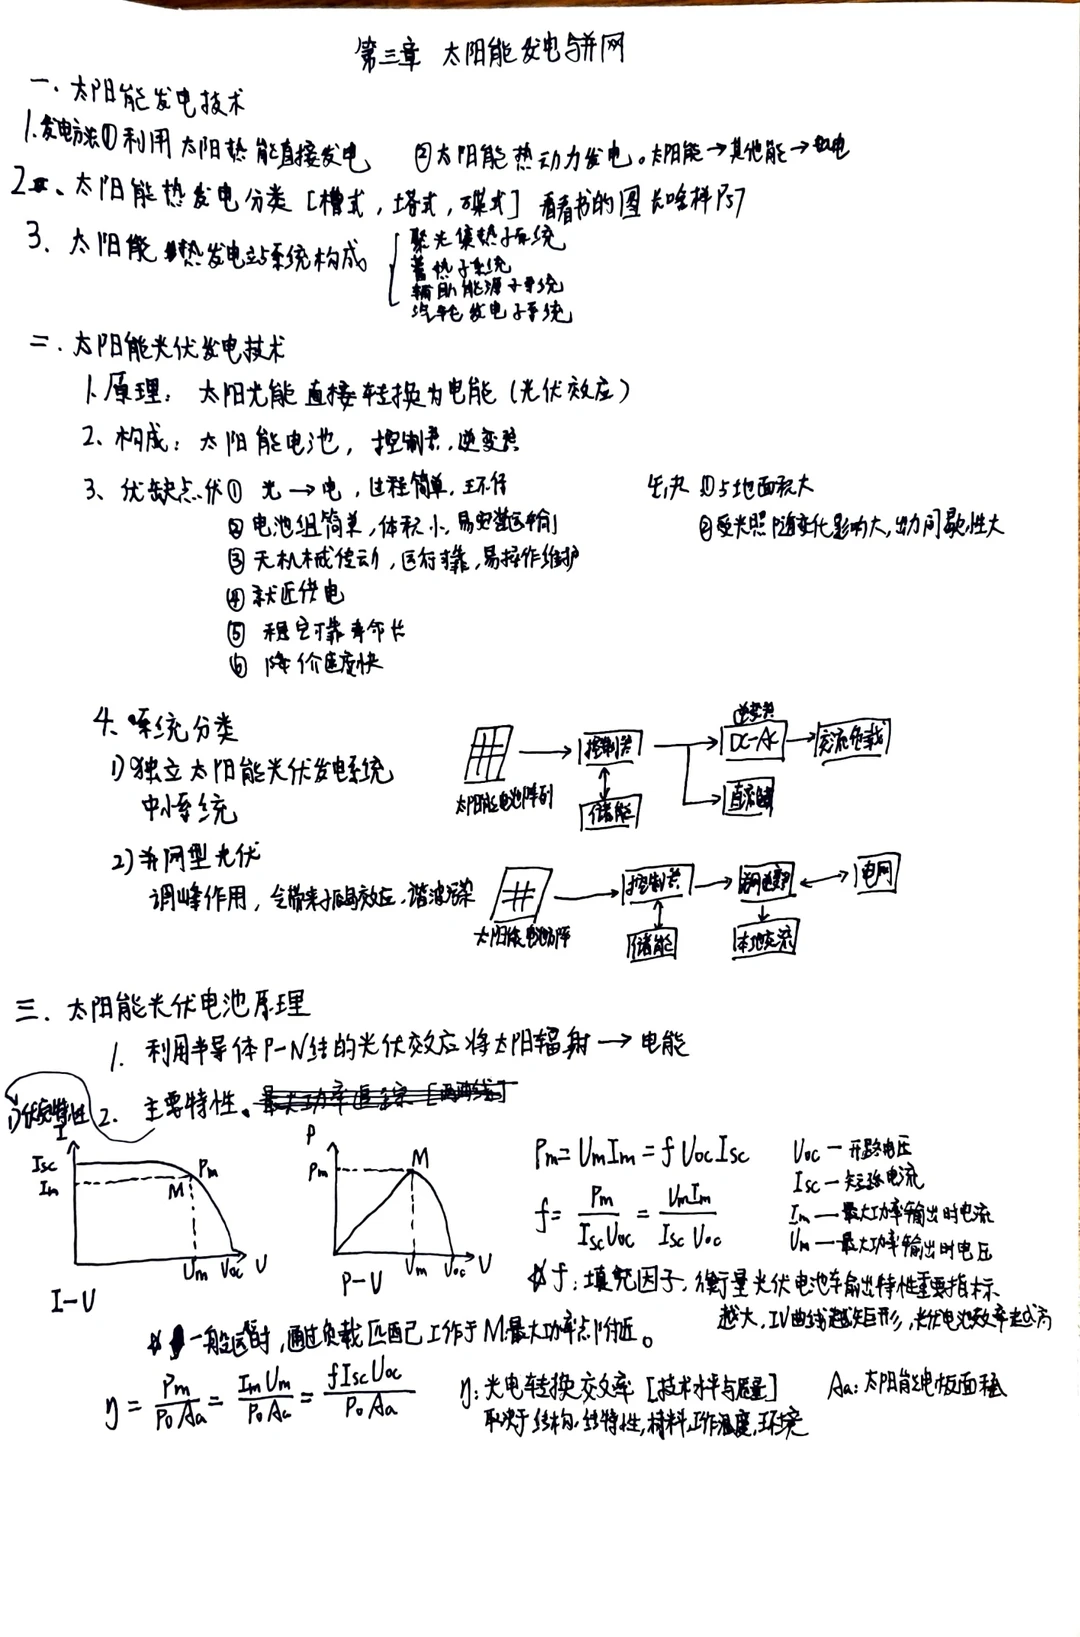 第三章 太阳能发电与并网
一. 太阳能发电技术
1.发电方法①利用太阳热能直接发电 ②太阳能热动力发电。太阳能→其他能→电
2、太阳能热发电分类 [槽式，塔式，碟式] 看看书的图长啥样 P57
3. 太阳能热发电站系统构成
聚光集热子系统
蓄热子系统
辅助能源子系统
汽轮发电子系统
二. 太阳能光伏发电技术
1. 原理: 太阳光能直接转换为电能 (光伏效应)
2、构成: 太阳能电池, 控制器, 逆变器
3、优缺点 优① 光→电, 过程简单, 环保 缺 ①占地面积大
②电池组简单, 体积小, 易安装运输 ②受光照随变化影响大, 出力间歇性大
③无机械传动, 运行可靠, 易操作维护
④就近供电
⑤ 稳定可靠寿命长
⑥ 降价速度快
4、系统分类
1)独立太阳能光伏发电系统
中小系统
太阳能电池阵列
控制器
储能
逆变器
DC-AC
交流负载
直流负载
2)并网型光伏
调峰作用, 会带来孤岛效应, 谐波污染
太阳能电池方阵
控制器
储能
并网逆变
电网
本地交流
三. 太阳能光伏电池原理
1. 利用半导体P-N结的光伏效应将太阳辐射→电能
2. 主要特性。
1)伏安特性
I
Isc
Im
M
Pm
Um Voc V
I-V
P
Pm
M
Um Voc V
P-V
Pm = UmIm = f UocIsc
f = Pm / IscUoc = UmIm / Isc Uoc
Uoc — 开路电压
Isc — 短路电流
Im — 最大功率输出时电流
Um — 最大功率输出时电压
f: 填充因子, 衡量光伏电池输出特性重要指标
越大, IV曲线越矩形, 光伏电池效率越高
一般运行时, 通过负载匹配已工作于M最大功率点附近。
η = Pm / P0Aa = ImUm / P0Aa = fIscUoc / P0Aa
η: 光电转换效率 [技术水平与质量] Aa: 太阳能电板面积
取决于结构, 结特性, 材料, 工作温度, 环境